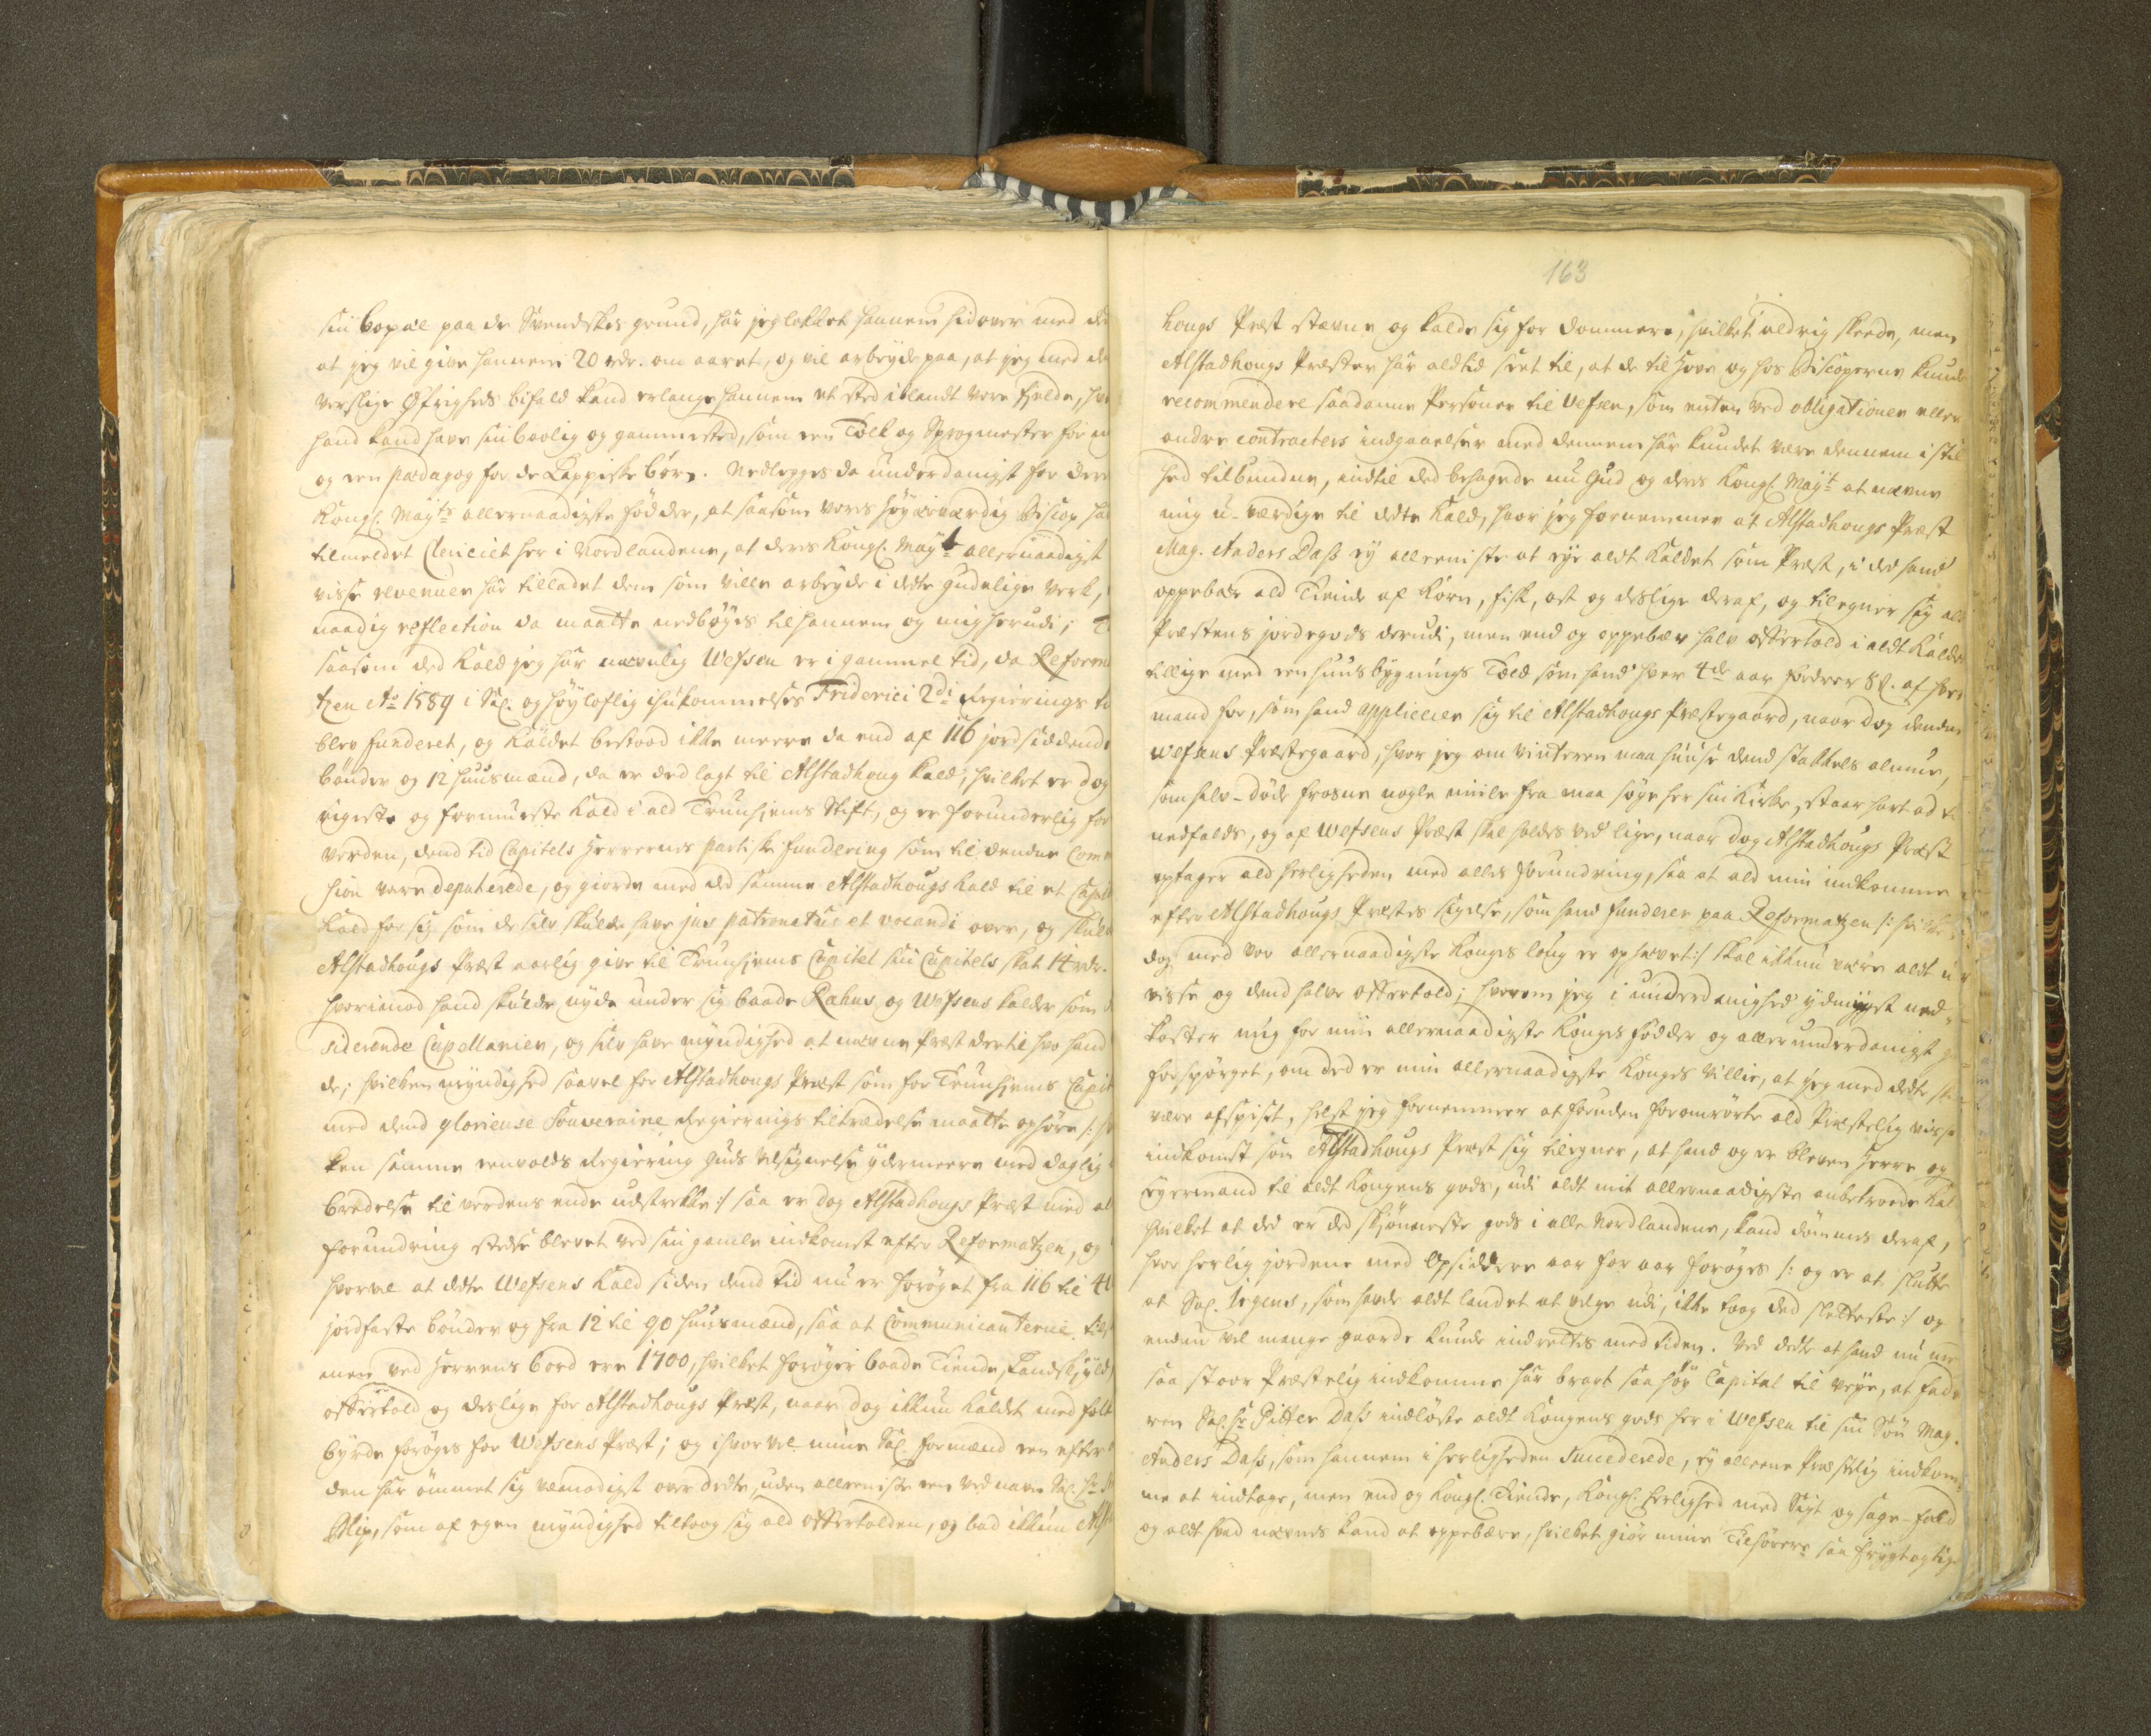 sin bopæl paa de Svendskes grund, har jeg lokket hannem hidover med det
at jeg vil give hannem 20 rdr. om aaret, og vil arbeyde paa, at jeg med den
verslige Øfrigheds bifald kand erlange hannem et sted iblandt vore fielde, hvor
hand kand have sin boelig og gammested, som een Tolk og Sprogmester for mig
og een pædagog for de Lappiske børn. Nedlegges da underdanigst for Deres
Kongl. Mayts allernaadigste fødder, at saasom vores høyærværdig Biscop har
tilmeldet Clericiet her i Nordlandene, at deres Kongl. Mayt allernaadigst
visse revenuer har tilladet dem som ville arbeyde i dette gudelige verk,
naadig reflection da maatte nedbøyes til hannem og mig herudi;
saasom ded Kald jeg har nævnlig Wefsen er i gammel tid, da Reforma
tzen Ao 1589 i Sal. og høyloflig ihukommelses Friderici 2di Regierings tid
blev funderet, og Kaldet bestood ikke meere da end af 116 jordsiddende
bønder og 12 huusmænd, da er ded lagt til Alstadhoug kald, hvilket er dog
rigeste og formueste Kald i ald Trunhiems Stift, og er forunderlig for
verden, dend tid Capitels Herrernes partiske fundering som til denne Com
sion vare deputerede, og giorde med ded samme Alstadhougs Kald til et Capit
Kald for sig som de selv skulde have jus patronatus et vocandi over, og skulde
Alstadhougs Præst aarlig give til Trunhiems Capitel sin Capitels skat 14 rdr.
hvorimod hand skulde nyde under sig baade Rahns og Wefsens kalder som
siderende Capellanier, og selv have myndighed at nævne Præst dertil hvo hand
de; hvilken myndighed saavel for Alstadhougs Præst som for Trunhiems Capit
med dend glorieuse Souveraine Regierings tiltrædelse maatte ophøre /:
ken samme eenvolds Regiering Guds velsignelse ydermeere med daglig
bredelse til verdens ende udstrekke :/ saa er dog Alstadhougs Præst med al
forundring stedse blevet ved sin gamle indkomst efter Reformatzen, og
hvorvel at dette Wefsens Kald siden dend tid nu er forøget fra 116 til 4
jordfaste bønder og fra 12 til 90 huusmænd, saa at Communicanterne
men ved Herrens bord ere 1700, hvilket forøger baade Tiende, Landskyld,
offertold og deslige for Alstadhougs Præst, naar dog ikkun Kaldet med folk
byrde forøges for Wefsens Præst; og ihvorvel mine Sal. formænd een efter
den har ømmet sig vemodigst over dette, uden alleeniste een ved navn Sal. Hr
som af egen myndighed tiltoog sig ald offertolden, og bad ikkun Alst
163
hougs Præst stævne og kalde sig for dommere, hvilket aldrig skeede, men
Alstadhougs Præster har altid seet til, at de til Hove og hos Biscoperne kunde
recommendere saadanne Personer til Vefsen, som enten ved obligationer eller
andre contracters indgaaelser med dennem har kundet være dennem i stil
hed tilbunden, indtil ded behagede nu Gud og deres Kongl. Mayt at nævne
mig u-værdige til dette Kald, hvor jeg fornemmer at Alstadhougs Præst
Mag. Anders Dass ey alleeniste at eye aldt Kaldet som Præst, i ded hand
oppebær ald Tiende af Korn, fisk, ost og deslige deraf, og tilegner sig alt
Præstens jordegods derudi, men end og oppebær halv offertold i aldt Kaldet
tillige med een huusbygnings Told som hand hver 4de aar fordrer 8 s. af hver
mand for, som hand applicerer sig til Alstadhougs Præstegaard, naar dog denne
Wefsens Præstegaard, hvor jeg om vinteren maa huuse dend stakkels almue,
som halv-døde frosne nogle miile fra maa søge her sin Kirke, staar hart ad
nedfalds, og af Wefsens Præst skal holdes ved lige, naar dog Alstadhougs Præst
optager ald herligheden med alles forundring, saa at ald min indkomme
efter Alstadhougs Præstes sigelse, som hand funderer paa Reformatzen /: hvilke
dog med vor allernaadigste Konges loug er ophævet :/ skal ikkun være aldt u
visse og dend halve offertold; hvorom jeg i underdanighed ydmygst ned-
kaster mig for min allernaadigste Konges fødder og allerunderdanigst
forspørger, om ded er min allernaadigste Konges villie, at jeg med dette
være afspiset, helst jeg fornemmer at foruden foromrørte ald Præstelig visse
indkomst som Alstadhougs Præst sig tilegner, at hand og er bleven Herre og
eyermand til aldt Kongens gods, udi aldt mit allernaadigste anbetroede Kal
hvilket at ded er ded skiønneste gods i alle Nordlandene, kand dømmes deraf,
hvor herlig jordene med Opsiddere aar for aar forøges /: og er at slutte
at Sal. Irgens, som havde aldt landet at velge udi, ikke toog ded sletteste :/ og
endnu vel mange gaarde kunde indrettes med tiden. Ved dette at hand nu
saa stoor Præstelig indkomme har bragt saa høy Capital til veye, at fade
ren Sal. Hr Pitter Dass indløste aldt Kongens gods her i Wefsen til sin Søn Mag.
Anders Dass, som hannem i herligheden succederede, ey alleene Præstelig indkom-
me at indtage, men end og Kongl. Tiende, Kongl. herlighed med Sigt og sage-fald
og aldt hvad nævnes kand at oppebære, hvilket giør mine Tilhørere saa frygtagtige